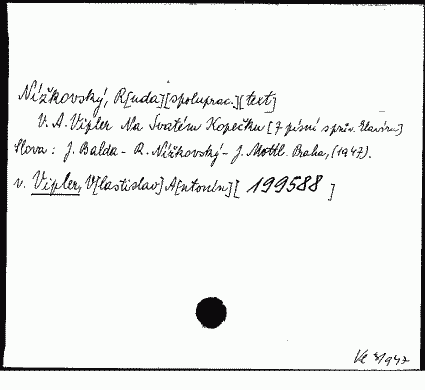 Nížkovský, R[uda][spoluprac.][text]
V. A. Vipler Na Svatém Kopečku [7 písní s prův. klavíru]
Slova: J. Balda - R. Nížkovský - J. Mottl. Praha, (1947).
v. Vipler, V[lastislav] A[ntonín] [199588]